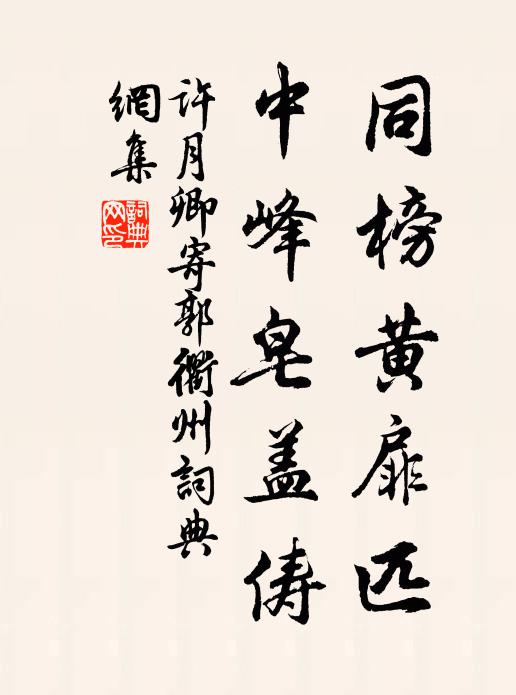 同榜黄扉匹
中峰皂盖俦
许月卿寄郭衢州詞典
網集
詞典網印